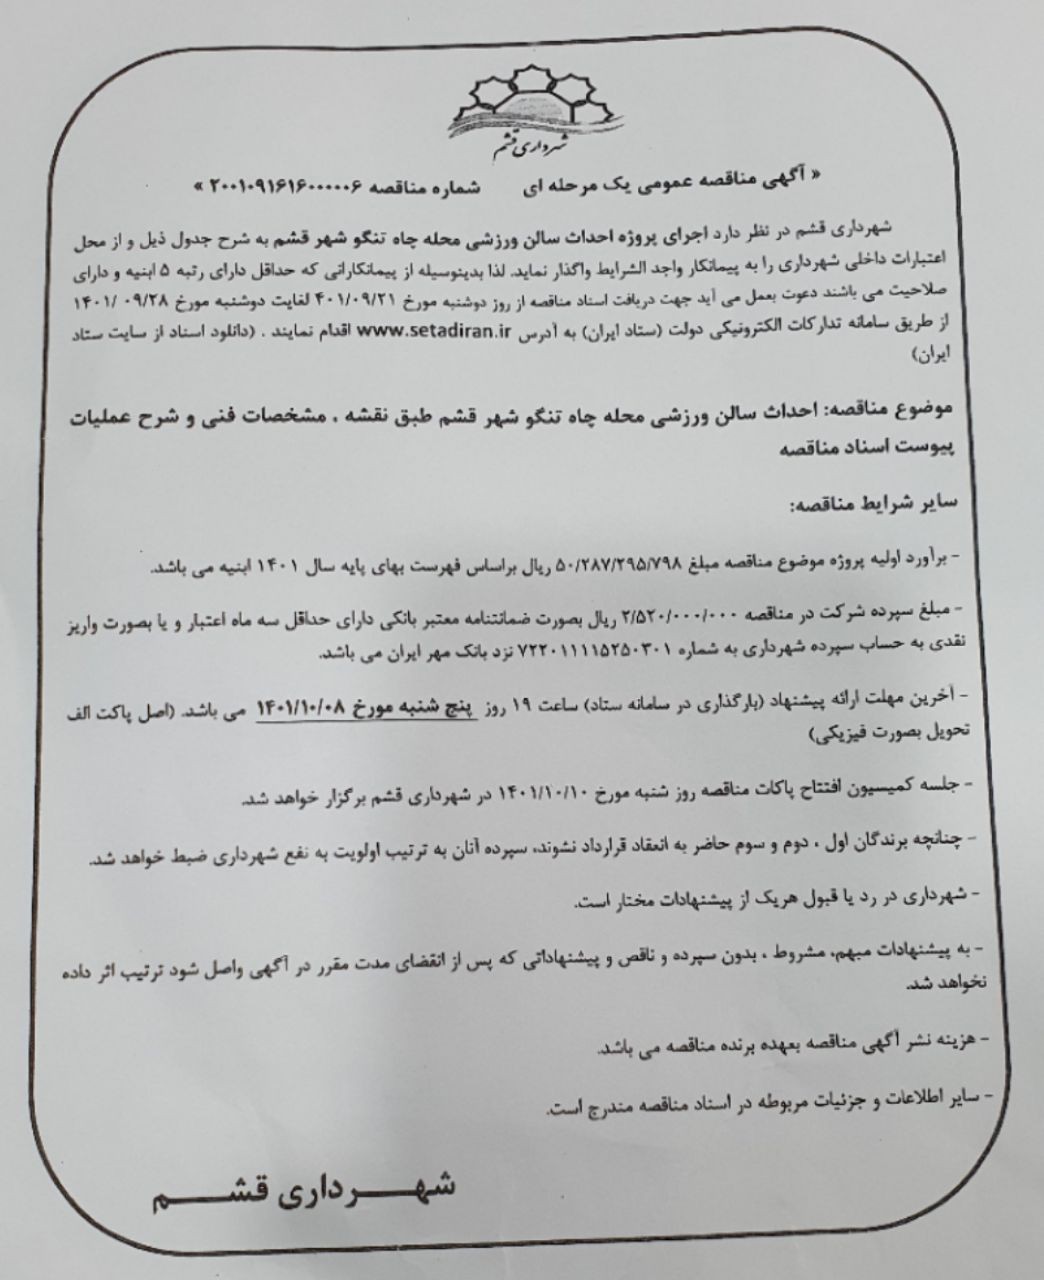 شهرداری قشم
« آگهی مناقصه عمومی یک مرحله ای شماره مناقصه ۲۰۰۱۰۹۱۶۱۶۰۰۰۰۰۶ »
شهرداری قشم در نظر دارد اجرای پروژه احداث سالن ورزشی محله چاه تنگو شهر قشم به شرح جدول ذیل و از محل
اعتبارات داخلی شهرداری را به پیمانکار واجد الشرایط واگذار نماید. لذا بدینوسیله از پیمانکارانی که حداقل دارای رتبه ۵ ابنیه و دارای
صلاحیت می باشند دعوت بعمل می آید جهت دریافت اسناد مناقصه از روز دوشنبه مورخ ۴۰۱/۰۹/۲۱ لغایت دوشنبه مورخ ۰۹/۲۸ /۱۴۰۱
از طریق سامانه تدارکات الکترونیکی دولت (ستاد ایران) به آدرس www.setadiran.ir اقدام نمایند . (دانلود اسناد از سایت ستاد
ایران)
موضوع مناقصه: احداث سالن ورزشی محله چاه تنگو شهر قشم طبق نقشه ، مشخصات فنی و شرح عملیات
پیوست اسناد مناقصه
سایر شرایط مناقصه:
- برآورد اولیه پروژه موضوع مناقصه مبلغ ۵۰/۲۸۷/۲۹۵/۷۹۸ ریال براساس فهرست بهای پایه سال ۱۴۰۱ ابنیه می باشد.
- مبلغ سپرده شرکت در مناقصه ۲/۵۲۰/۰۰۰/۰۰۰ ریال بصورت ضمانتنامه معتبر بانکی دارای حداقل سه ماه اعتبار و یا بصورت واریز
نقدی به حساب سپرده شهرداری به شماره ۷۲۲۰۱۱۱۱۵۲۵۰۳۰۱ نزد بانک مهر ایران می باشد.
- آخرین مهلت ارائه پیشنهاد (بارگذاری در سامانه ستاد) ساعت ۱۹ روز پنج شنبه مورخ ۱۴۰۱/۱۰/۰۸ می باشد. (اصل پاکت الف
تحویل بصورت فیزیکی)
- جلسه کمیسیون افتتاح پاکات مناقصه روز شنبه مورخ ۱۴۰۱/۱۰/۱۰ در شهرداری قشم برگزار خواهد شد.
- چنانچه برندگان اول ، دوم و سوم حاضر به انعقاد قرارداد نشوند، سپرده آنان به ترتیب اولویت به نفع شهرداری ضبط خواهد شد.
- شهرداری در رد یا قبول هریک از پیشنهادات مختار است.
- به پیشنهادات مبهم، مشروط ، بدون سپرده و ناقص و پیشنهاداتی که پس از انقضای مدت مقرر در آگهی واصل شود ترتیب اثر داده
نخواهد شد.
- هزینه نشر آگهی مناقصه بعهده برنده مناقصه می باشد.
- سایر اطلاعات و جزئیات مربوطه در اسناد مناقصه مندرج است.
شهـــرداری قشـــم